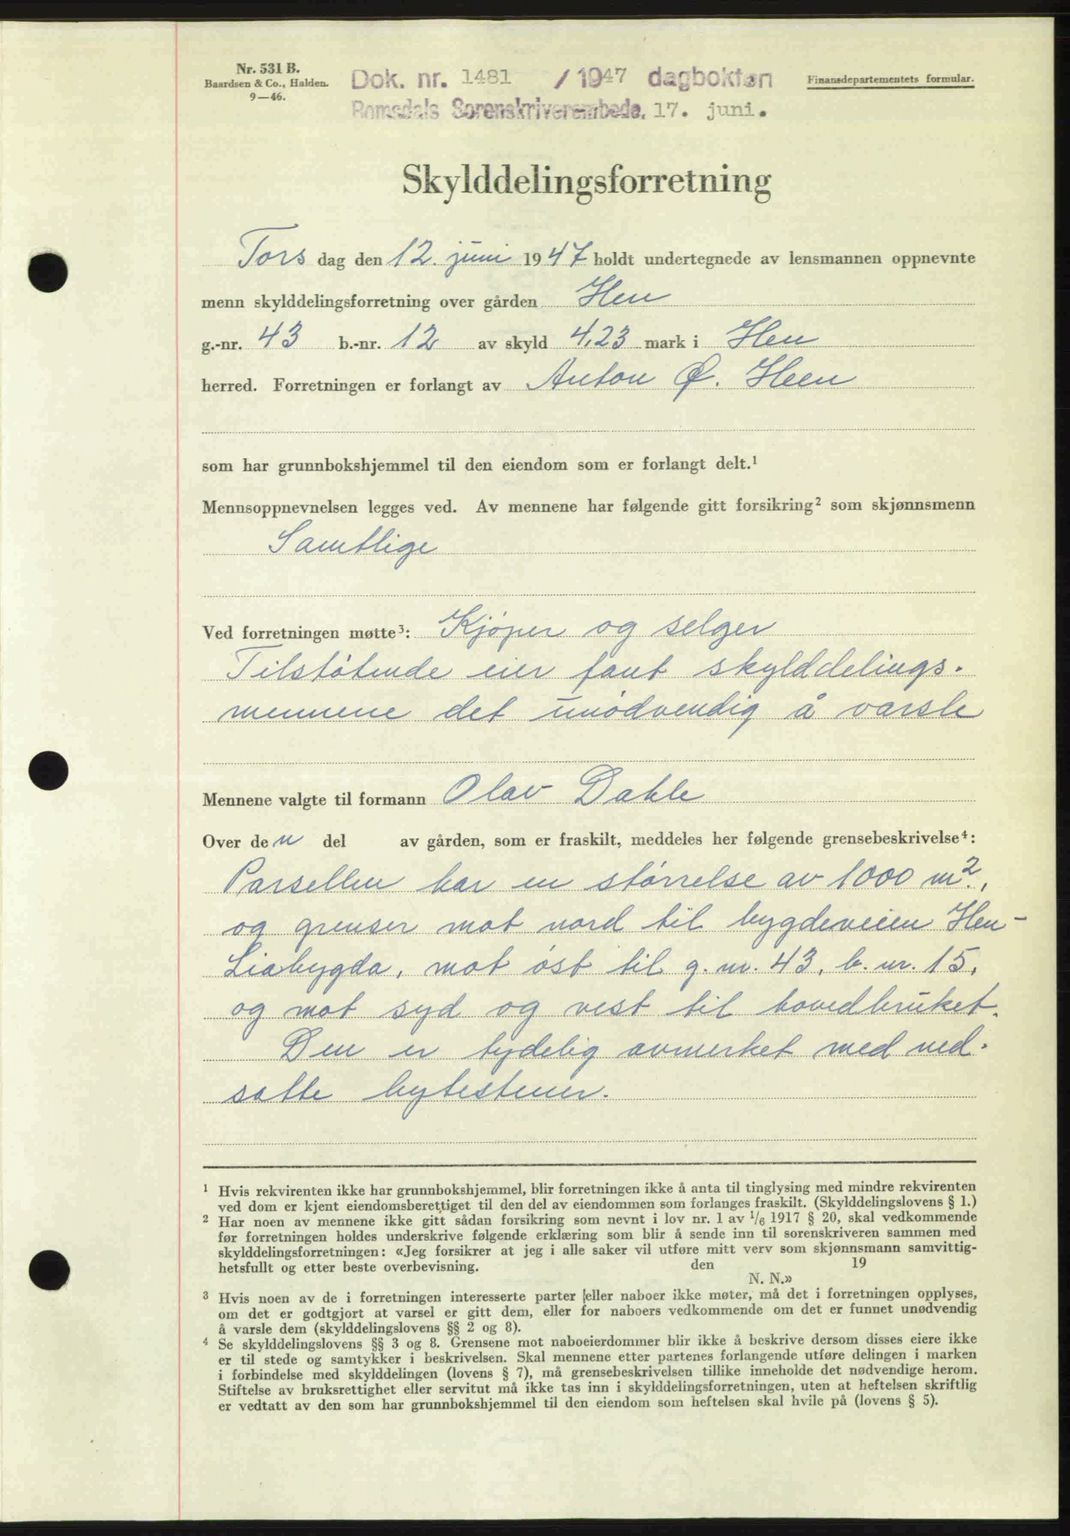 Nr. 531 B.
Baardsen & Co., Halden.
9—46.
Dok. nr. 1481 / 1947 dagboken
Romsdals Sorenskriverembede, 17. juni.
Finansdepartementets formular.
Skylddelingsforretning
Tors dag den 12. juni 1947 holdt undertegnede av lensmannen oppnevnte
menn skylddelingsforretning over gården Hen
g.-nr. 43 b.-nr. 12 av skyld 4,23 mark i Hen
herred. Forretningen er forlangt av Anton Ø. Heen
som har grunnbokshjemmel til den eiendom som er forlangt delt.¹
Mennsoppnevnelsen legges ved. Av mennene har følgende gitt forsikring² som skjønnsmenn
Samtlige
Ved forretningen møtte³: Kjøper og selger
Tilstøtende eier fant skylddelings-
mennene det unødvendig å varsle
Mennene valgte til formann Olav Dahle
Over den del av gården, som er fraskilt, meddeles her følgende grensebeskrivelse⁴:
Parsellen har en størrelse av 1000 m²,
og grenser mot nord til bygdeveien Hen-
Liabygda, mot øst til g. nr. 43, b. nr. 15,
og mot syd og vest til hovedbruket.
Den er tydelig avmerket med ned-
satte bytestener.
¹ Hvis rekvirenten ikke har grunnbokshjemmel, blir forretningen ikke å anta til tinglysing med mindre rekvirenten
ved dom er kjent eiendomsberettiget til den del av eiendommen som forlanges fraskilt. (Skylddelingslovens § 1.)
² Har noen av mennene ikke gitt sådan forsikring som nevnt i lov nr. 1 av ¹/₆ 1917 § 20, skal vedkommende
før forretningen holdes underskrive følgende erklæring som blir å sende inn til sorenskriveren sammen med
skylddelingsforretningen: «Jeg forsikrer at jeg i alle saker vil utføre mitt verv som skjønnsmann samvittig-
hetsfullt og etter beste overbevisning. den 19
N. N.»
³ Hvis noen av de i forretningen interesserte parter eller naboer ikke møter, må det i forretningen opplyses,
om det er godtgjort at varsel er gitt dem, eller for naboers vedkommende om det er funnet unødvendig
å varsle dem (skylddelingslovens §§ 2 og 8).
⁴ Se skylddelingslovens §§ 3 og 8. Grensene mot naboeierdommer blir ikke å beskrive dersom disses eiere ikke
er til stede og samtykker i beskrivelsen. Skal mennene etter partenes forlangende utføre delingen i marken
i forbindelse med skylddelingen (lovens § 7), må grensebeskrivelsen tillike inneholde det nødvendige herom.
Stiftelse av bruksrettighet eller servitut må ikke tas inn i skylddelingsforretningen, uten at heftelsen skriftlig
er vedtatt av den som har grunnbokshjemmel til den eiendom som heftelsen skal hvile på (lovens § 5).